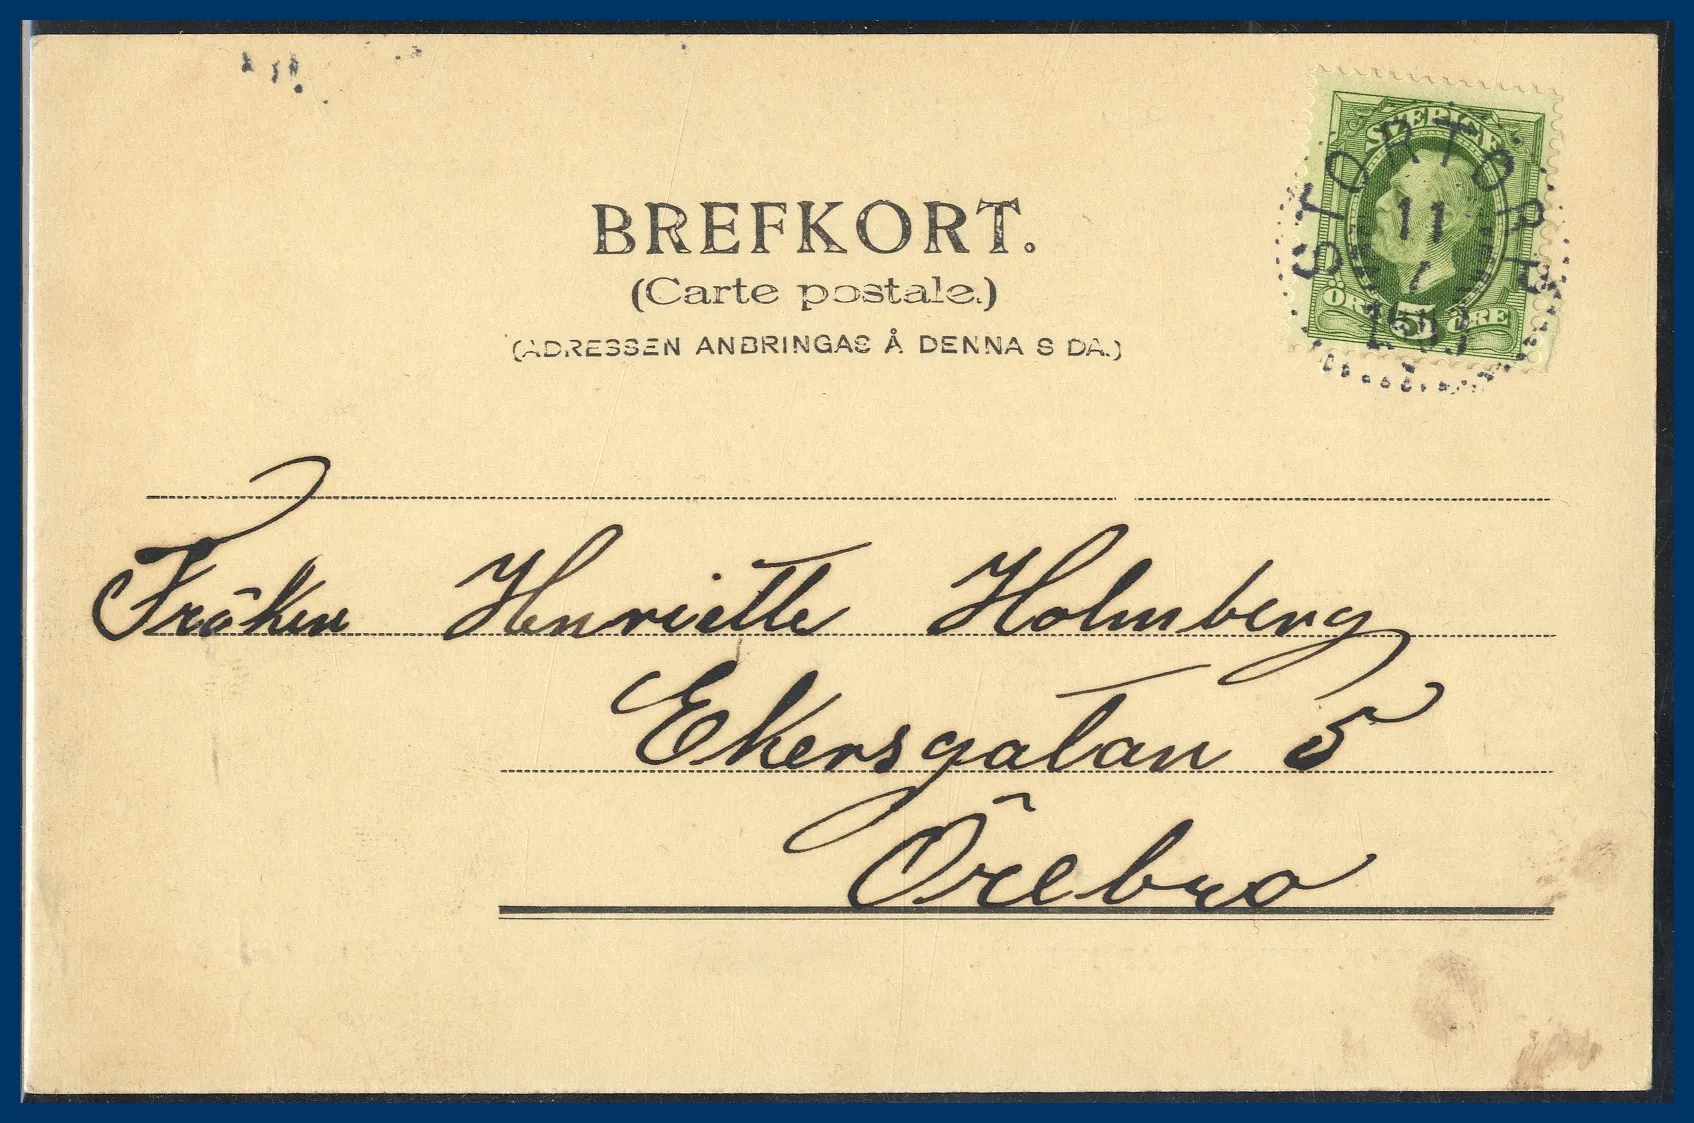 BREFKORT.
(Carte postale.)
(ADRESSEN ANBRINGAS Å DENNA SIDA.)
SVERIGE
ÖRE 5 ÖRE
STORTORP
11
1903
Fröken Henriette Holmberg
Ekersgatan 5
Örebro